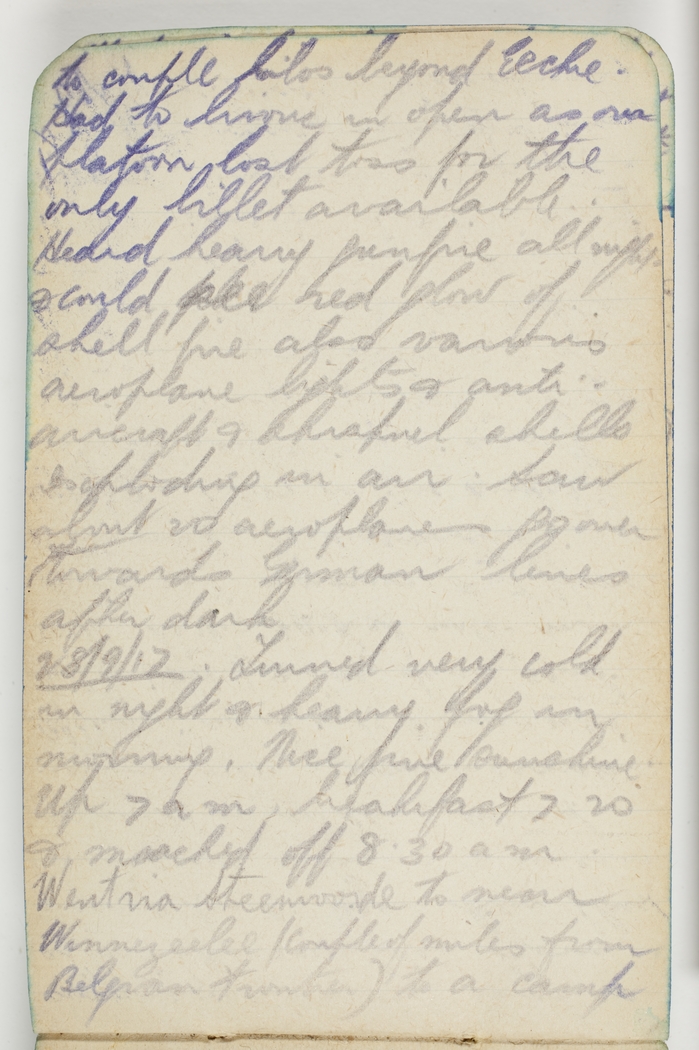 to couple kilos beyond Eecke.
Had to bivouc in open as our
platoon lost toss for the
only billet available.
Heard heavy gunfire all night
& could see red glow of
shell fire also various
aeroplane lights & anti-
aircraft & shrapnel shells
exploding in air. Saw
about 20 aeroplanes go over
towards German lines
after dark
28/9/17. Turned very cold
in night & heavy fog in
morning. Nice fine sunshine.
Up 7 am, breakfast 7 20
& marched off 8.30 am.
Went via Steenvoorde to near
Winnezeele (couple of miles from
Belgian Frontier) to a camp